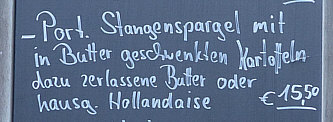 - Port. Stangenspargel mit
in Butter geschwenkten Kartoffeln
dazu zerlassene Butter oder
hausg. Hollandaise € 15,50